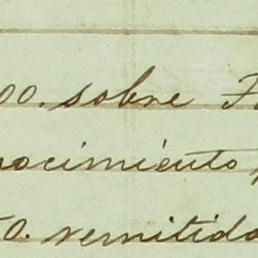 00. sobre
nocimiento
0. remitido